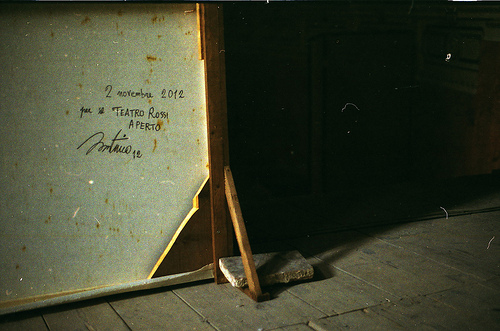 2 novembre 2012
per il TEATRO ROSSI
APERTO
12